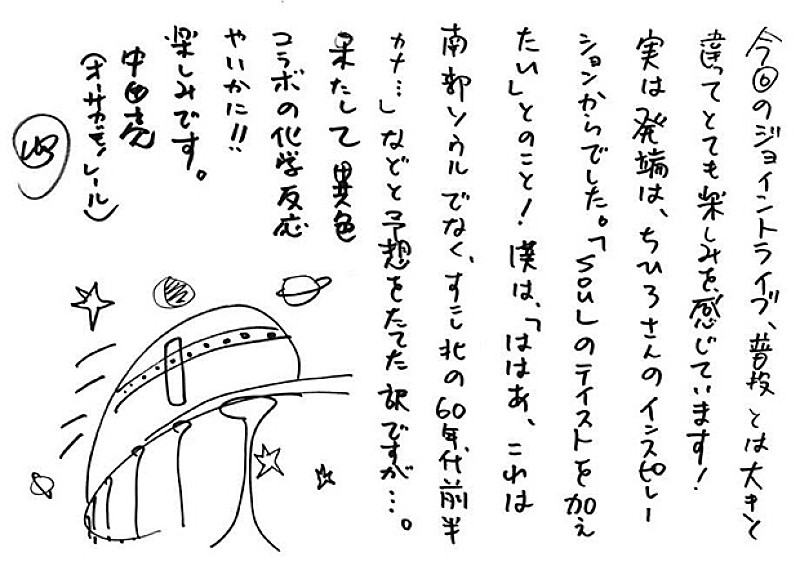 今回のジョイントライブ、普段とは大きく
違ってとても楽しみを感じています!
実は発端は、ちひろさんのインスピレー
ションからでした。「SOULのテイストを加え
たい」とのこと! 僕は、「ははあ、これは
南部ソウルでなく、すこし北の60年代前半
カナ…」などと予想をたてた訳ですが…。
果たして異色
コラボの化学反応
やいかに!!
楽しみです。
中田亮
(オーサカ=モノレール)